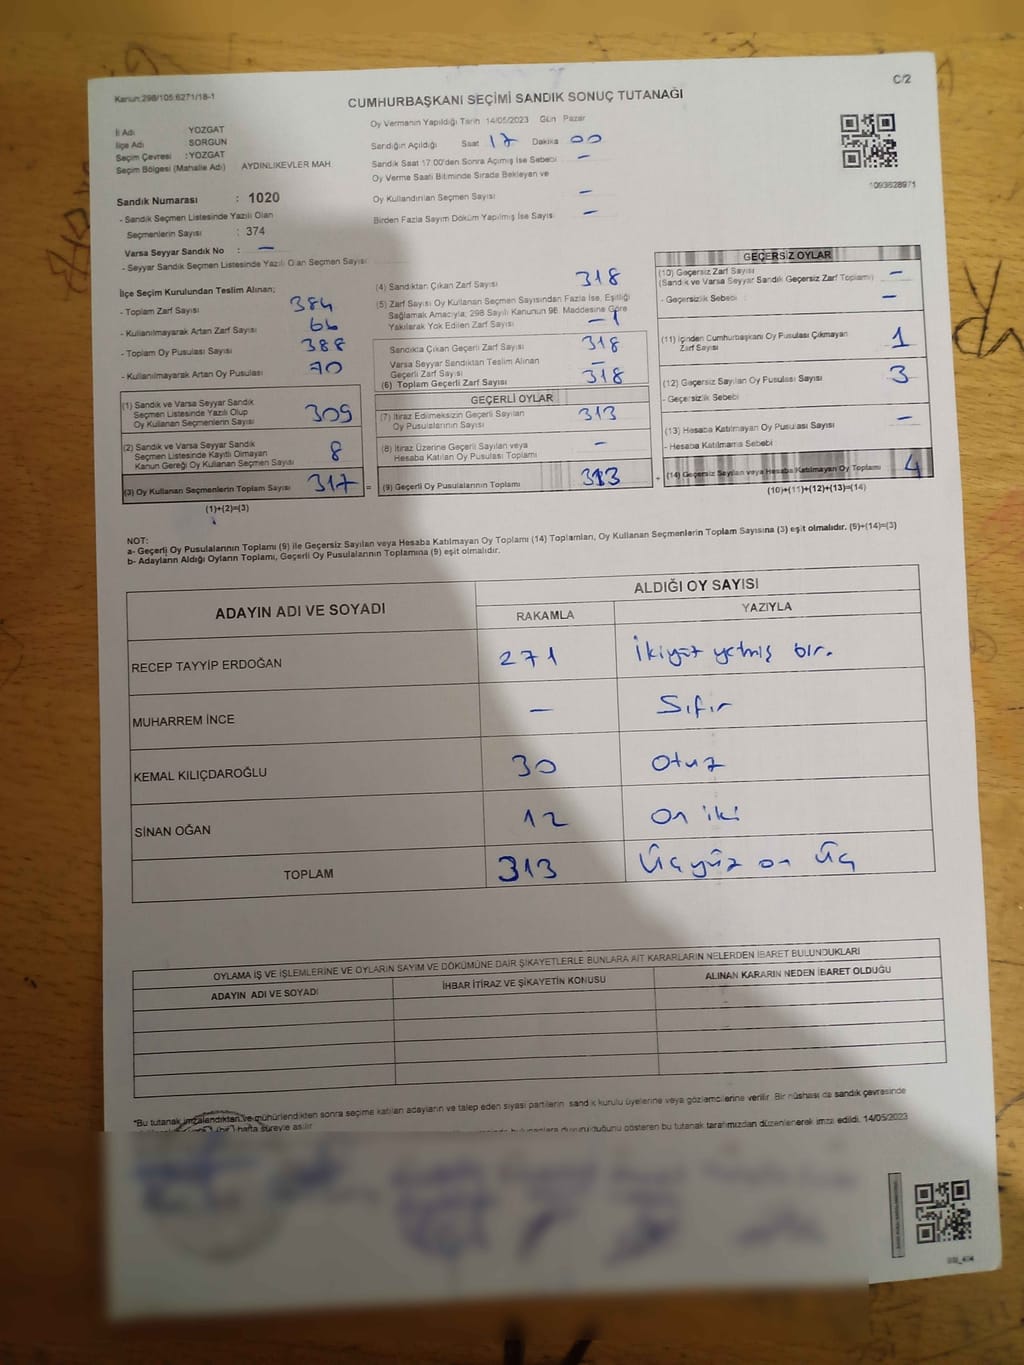 Kanun:298/105:6271/18-1
C/2
CUMHURBAŞKANI SEÇİMİ SANDIK SONUÇ TUTANAĞI
İl Adı YOZGAT
İlçe Adı SORGUN
Seçim Çevresi :YOZGAT
Seçim Bölgesi (Mahalle Adı) AYDINLIKEVLER MAH.
Oy Vermenin Yapıldığı Tarih 14/05/2023 Gün Pazar
Sandığın Açıldığı Saat 17 Dakika 00
Sandık Saat 17:00'den Sonra Açımış İse Sebebi –
Oy Verme Saati Bitiminde Sırada Bekleyen ve
Oy Kullandırılan Seçmen Sayısı –
Birden Fazla Sayım Döküm Yapılmış İse Sayısı –
1093628971
Sandık Numarası : 1020
- Sandık Seçmen Listesinde Yazılı Olan
Seçmenlerin Sayısı : 374
Varsa Seyyar Sandık No : –
- Seyyar Sandık Seçmen Listesinde Yazılı Olan Seçmen Sayısı
İlçe Seçim Kurulundan Teslim Alınan;
- Toplam Zarf Sayısı 384
- Kullanılmayarak Artan Zarf Sayısı 66
- Toplam Oy Pusulası Sayısı 388
- Kullanılmayarak Artan Oy Pusulası 70
(1) Sandık ve Varsa Seyyar Sandık
Seçmen Listesinde Yazılı Olup
Oy Kullanan Seçmenlerin Sayısı 309
(2) Sandık ve Varsa Seyyar Sandık
Seçmen Listesinde Kayıtlı Olmayan
Kanun Gereği Oy Kullanan Seçmen Sayısı 8
(3) Oy Kullanan Seçmenlerin Toplam Sayısı 317 =
(1)+(2)=(3)
(4) Sandıktan Çıkan Zarf Sayısı 318
(5) Zarf Sayısı Oy Kullanan Seçmen Sayısından Fazla İse, Eşitliği
Sağlamak Amacıyla; 298 Sayılı Kanunun 98. Maddesine Göre
Yakılarak Yok Edilen Zarf Sayısı – 1
Sandıkta Çıkan Geçerli Zarf Sayısı 318
Varsa Seyyar Sandıktan Teslim Alınan
Geçerli Zarf Sayısı –
(6) Toplam Geçerli Zarf Sayısı 318
GEÇERLİ OYLAR
(7) İtiraz Edilmeksizin Geçerli Sayılan
Oy Pusulalarının Sayısı 313
(8) İtiraz Üzerine Geçerli Sayılan veya
Hesaba Katılan Oy Pusulası Toplamı –
(9) Geçerli Oy Pusulalarının Toplamı 313 +
GEÇERSİZ OYLAR
(10) Geçersiz Zarf Sayısı
(Sandık ve Varsa Seyyar Sandık Geçersiz Zarf Toplamı) –
- Geçersizlik Sebebi –
(11) İçinden Cumhurbaşkanı Oy Pusulası Çıkmayan
Zarf Sayısı 1
(12) Geçersiz Sayılan Oy Pusulası Sayısı 3
- Geçersizlik Sebebi
(13) Hesaba Katılmayan Oy Pusulası Sayısı –
- Hesaba Katılmama Sebebi
(14) Geçersiz Sayılan veya Hesaba Katılmayan Oy Toplamı 4
(10)+(11)+(12)+(13)=(14)
NOT:
a- Geçerli Oy Pusulalarının Toplamı (9) ile Geçersiz Sayılan veya Hesaba Katılmayan Oy Toplamı (14) Toplamları, Oy Kullanan Seçmenlerin Toplam Sayısına (3) eşit olmalıdır. (9)+(14)=(3)
b- Adayların Aldığı Oyların Toplamı, Geçerli Oy Pusulalarının Toplamına (9) eşit olmalıdır.
ADAYIN ADI VE SOYADI
ALDIĞI OY SAYISI
RAKAMLA YAZIYLA
RECEP TAYYİP ERDOĞAN 271 İkiyüz yetmiş bir.
MUHARREM İNCE – Sıfır
KEMAL KILIÇDAROĞLU 30 Otuz
SİNAN OĞAN 12 On iki
TOPLAM 313 Üçyüz on üç
OYLAMA İŞ VE İŞLEMLERİNE VE OYLARIN SAYIM VE DÖKÜMÜNE DAİR ŞİKAYETLERLE BUNLARA AİT KARARLARIN NELERDEN İBARET BULUNDUKLARI
ADAYIN ADI VE SOYADI İHBAR İTİRAZ VE ŞİKAYETİN KONUSU ALINAN KARARIN NEDEN İBARET OLDUĞU
*Bu tutanak imzalandıktan ve mühürlendikten sonra seçime katılan adayların ve talep eden siyasi partilerin sandık kurulu üyelerine veya gözlemcilerine verilir. Bir nüshası da sandık çevresinde
hafta süreyle asılır.
bulunanlara duyurulduğunu gösteren bu tutanak tarafımızdan düzenlenerek imza edildi. 14/05/2023